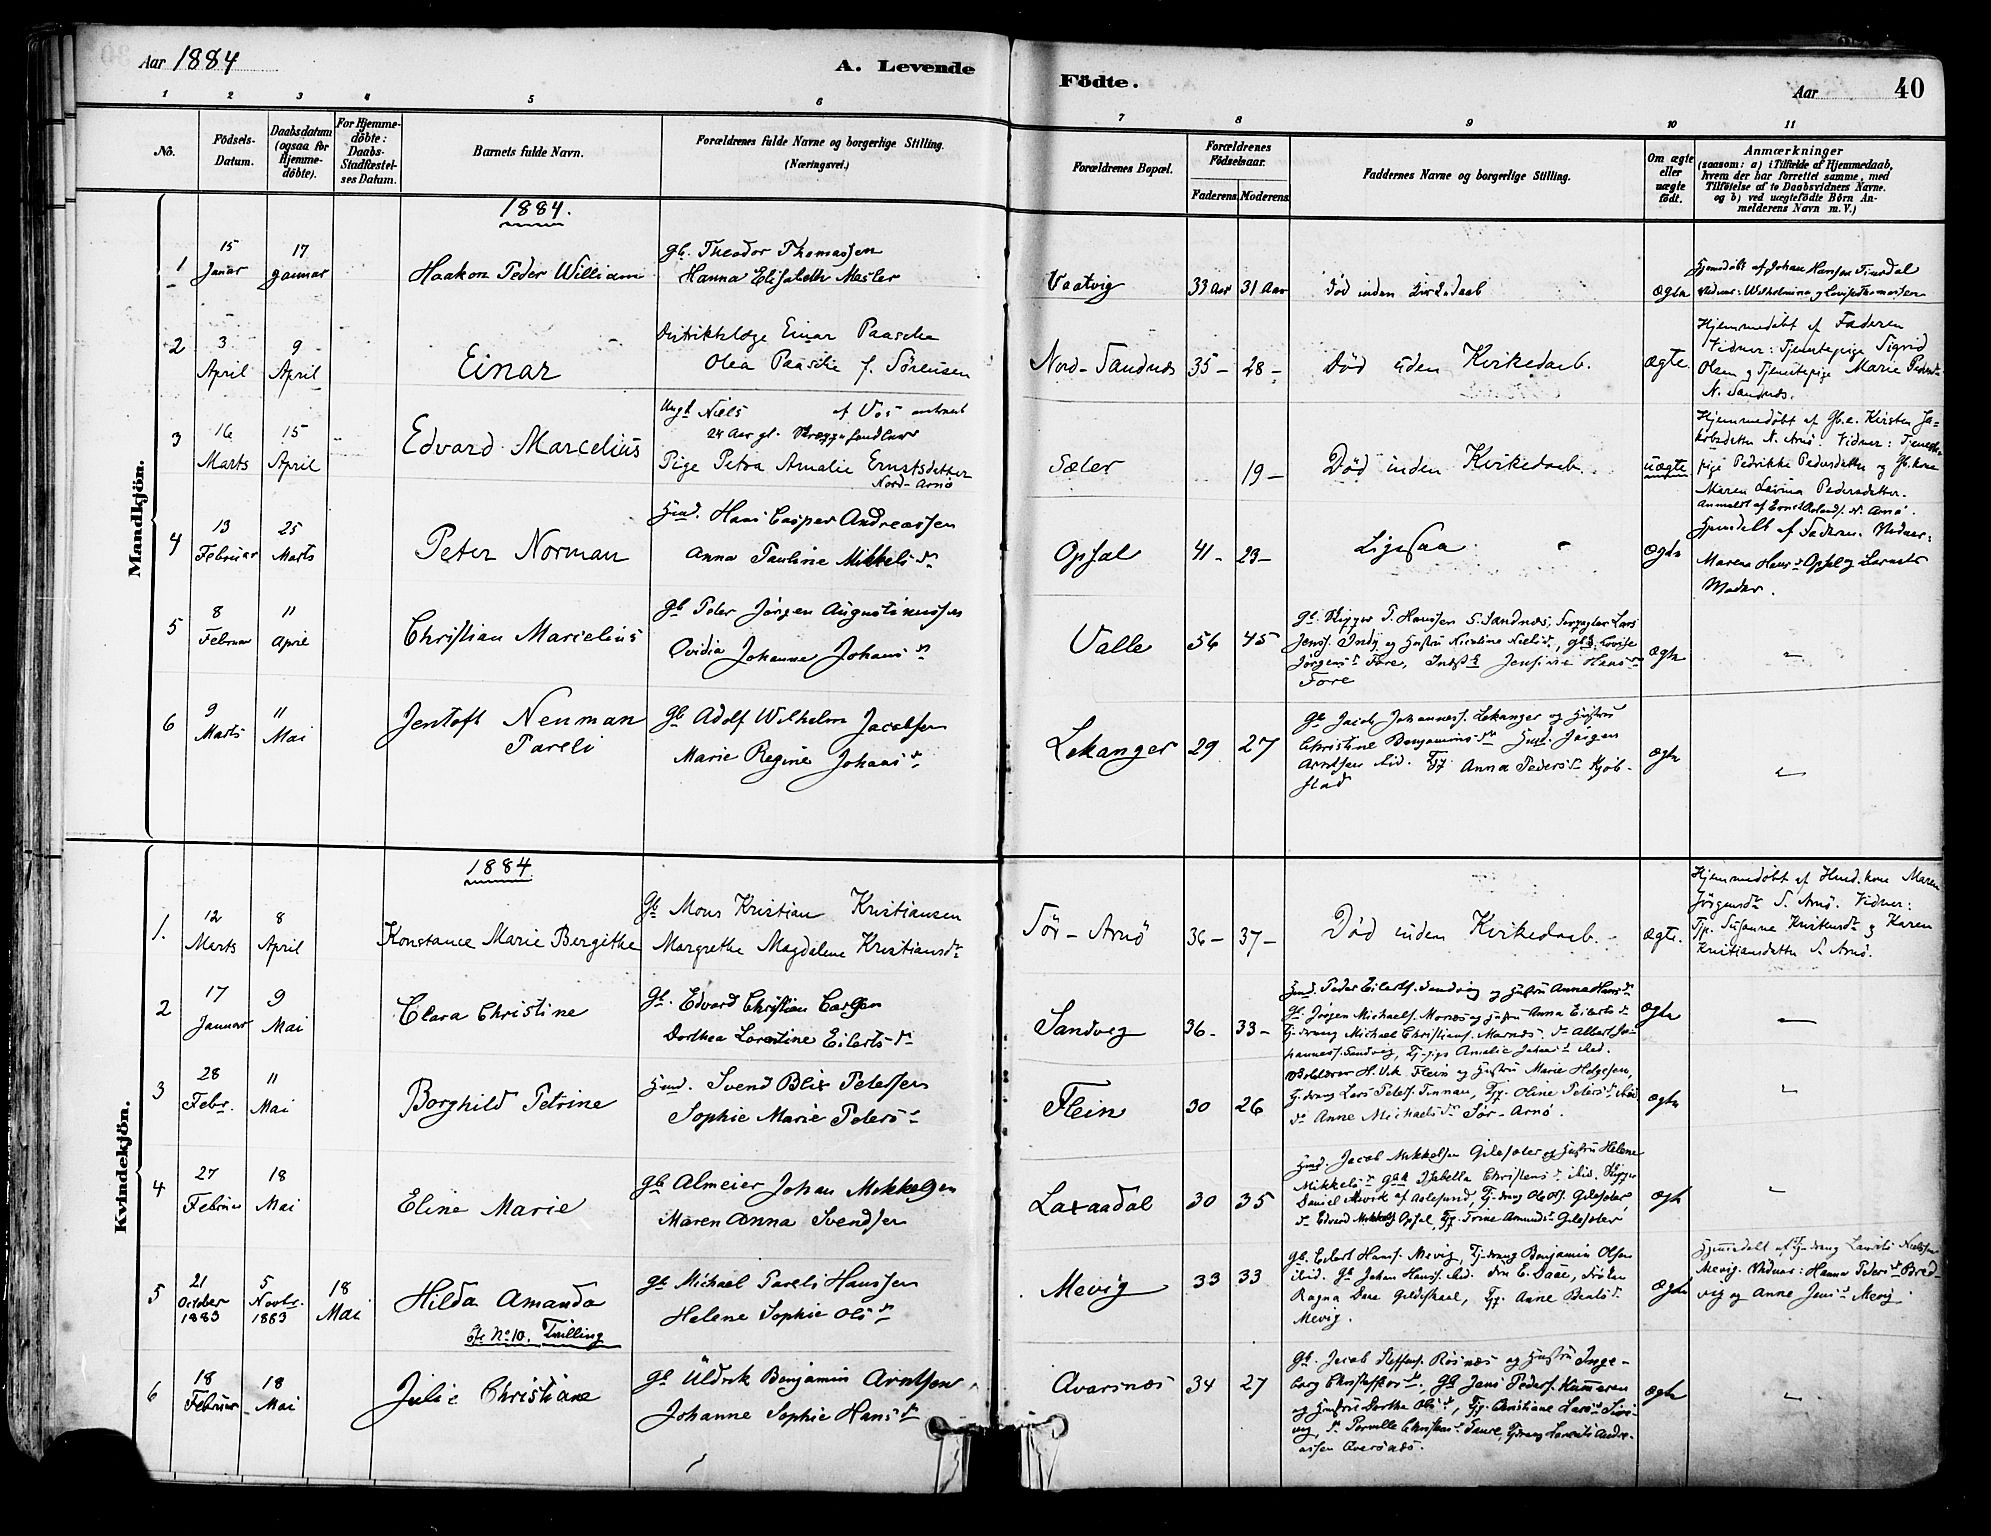 Aar 1884
A. Levende
Födte.
Aar
40
1
2
3
4
5
6
7
8
9
10
11
No.
Födsels-
Datum.
Daabsdatum
(ogsaa for
Hjemme-
döbte).
For Hjemme-
döbte:
Daabs-
Stadfæstel-
ses Datum.
Barnets fulde Navn.
Forældrenes fulde Navne og borgerlige Stilling.
(Næringsvei.)
Forældrenes Bopæl.
Forældrenes
Födselsaar.
Faderens.
Moderens.
Faddernes Navne og borgerlige Stilling.
Om ægte
eller
uægte
födt.
Anmærkninger
(saasom: a) i Tilfælde af Hjemmedaab,
hvem der har forrettet samme, med
Tilföielse af to Daabsvidners Navne.
og b) ved uægtefödte Börn An-
melderens Navn m. V.)
Mandkjön.
1884.
1
15
Januar
17
Januar
Haakon Peder William
Gb. Theodor Thomassen
Hanna Elisabeth Masler
Vaatvig
33 Aar
31 Aar
Död inden Kirkedaab
Ægte
Hjemdöbt af Johan Hansen Finsdal
Vidner: Wilhelmina og Lovise Thomassen
2
3
April
9
April
Einar
Distriktslæge Einar Paasche
Olea Paasche f. Sörensen
Nord-Sandnæs
35 -
28 -
Död uden Kirkedaab.
ægte
Hjemmedöbt af Faderen
Vidner: Tjenestepige Sigrid
Olsen og Tjenestepige Marie Pedersdr
N. Sandnæs.
3
16
Marts
15
April
Edvard Marcelius
Ungk Niels af Vos
24 Aar gl. Skræppehandler
Pige Petra Amalie Ernstsdatter
Nord-Arnö
Sæler
19 -
Död inden Kirkedaab.
uægte
Hjemmedöbt af Gb.e. Kirsten Ja-
kobsdatter N. Arnö. Vidner: Tjeneste-
pige Pedrikke Pedersdatter og Gb.kone
Maren Lavina Pedersdatter.
Anmeldt af Ernst Roland. N. Arnö.
4
13
Februar
25
Marts
Peter Norman
Hmd. Hans Casper Andreassen
Anna Pauline Mikkelsdr
Opsal
41 -
23 -
Ligesaa
Ægte
Hjemdöbt af Faderen. Vidner:
Marena Hansdr Opsal og Barnets
Moder.
5
8
Februar
11
April
Christian Marcelius
Gb Peder Jörgen Augustinussen
Ovidia Johanna Johansdr
Valle
56
45
Gb. Skipper P. Hanssen S. Sandnæs, Lars
Jenss. Indy og Hustru Nicoline Nielsdr, Lovise
Jörgensdr Fore, Jensine Hansdr
Fore
Ægte
"
6
9
Marts
11
Mai
Jentoft Neuman
Pareli
Gb Adolf Wilhelm Jacobsen
Marie Regine Johansdr
Lekanger
29
27
Gb Jacob Johanness. Lekanger og Hustru
Christine Benjaminsdr Hmd. Jörgen
Arntsen ibid. Tjp. Anna Pedersdr Kjöb-
stad
Ægte
"
Kvindekjön.
1884
1.
12
Marts
8
April
Konstance Marie Bergithe
Gb Mons Kristian Kristiansen
Margrethe Magdalene Kristiansdr
Sör-Arnö
36 -
37 -
Död uden Kirkedaab.
ægte.
Hjemmedöbt af Hmd.kone Maren
Jörgensdr S. Arnö. Vidner:
Tjp. Susanne Kristensdr og Karen
Kristiansdatter S. Arnö.
2
17
Januar
9
Mai
Clara Christine
Gb. Edvard Christian Carlsen
Dorthea Lorentine Eilertsdr
Sandvig
36 -
33 -
Hmd. Peder Eilerts. Sandvig og Hustru Anna Hansdr
Gb. Jörgen Michaels. Marnæs og Hustru Anna Eilertsdr
Tj.dreng Michael Christians. Marnæs. Do Albert Jo-
hanness. Sandvig, Tj.pige Amalie Johansdr ibid.
Ægte
"
3
28
Febr.
11
Mai
Borghild Petrine
Hmd. Svend Blix Petersen
Sophie Marie Pedersdr
Flein
30
26
H. Vik Flein og Hustru Marie Helgesen,
Tj.dreng Lars Peters. Finnan, Tjp. Oline Petersdr ibid
Do Anne Michaelsdr Sör-Arnö.
Ægte
"
4
27
Februar
18
Mai
Eline Marie
Gb Almeier Johan Mikkelsen
Maren Anna Svendsen
Laxaadal
30
35
Hmd. Jacob Mikkelsen Gilesæter og Hustru Helene
Mikkelsdr Isabella Christensdr ibid. Skipper
Daniel Mevik af Aalesund, Tj.dreng Ole Ols. Gilesæter
Do Edvard Mikkels. Opsal, Tjp. Trine Amundsdr Gilesæter
Ægte
"
5
21
October
1883
5
Novbr.
1883
18
Mai
Hilda Amanda
Cfr No 10. Tvilling
Gb Michael Pareli Hanssen
Helene Sophie Olsdr
Mevig
33
33
Gb. Eilert Hanss. Mevig, Tj.dreng Benjamin Olsen
ibid. Gb Johan Hanss. ibid. Fru E. Daae, Fröken
Ragna Daae Gildeskaal, Tjp. Anne Bentsdr
Mevig.
Ægte
Hjemmedöbt af Tj.dreng Laurits Nielssen
Mevig. Vidner: Hanna Pedersdr Bred-
vig og Anne Jensdr Mevig.
6
18
Februar
18
Mai
Julie Christiane
Gb Uldrik Benjamin Arntsen
Johanne Sophie Hansdr
Avarsnæs
34
27
Gb. Jacob Steffens. Rösnæs og Hustru Inge-
borg Christoffersdr, Gb Jens Peders. Kummeren
og Hustru Dorthe Olsdr, Tjp. Christiane Larsdr
Do Pernille Christensdr Saure, Tj.dreng Lorents Andre-
assen Avarsnæs.
Ægte
"